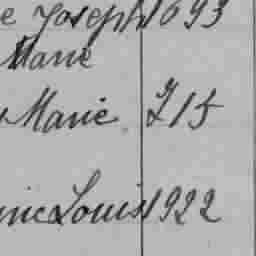 e Joseph 1693
Marie
Marie 715
inic Louis 1922